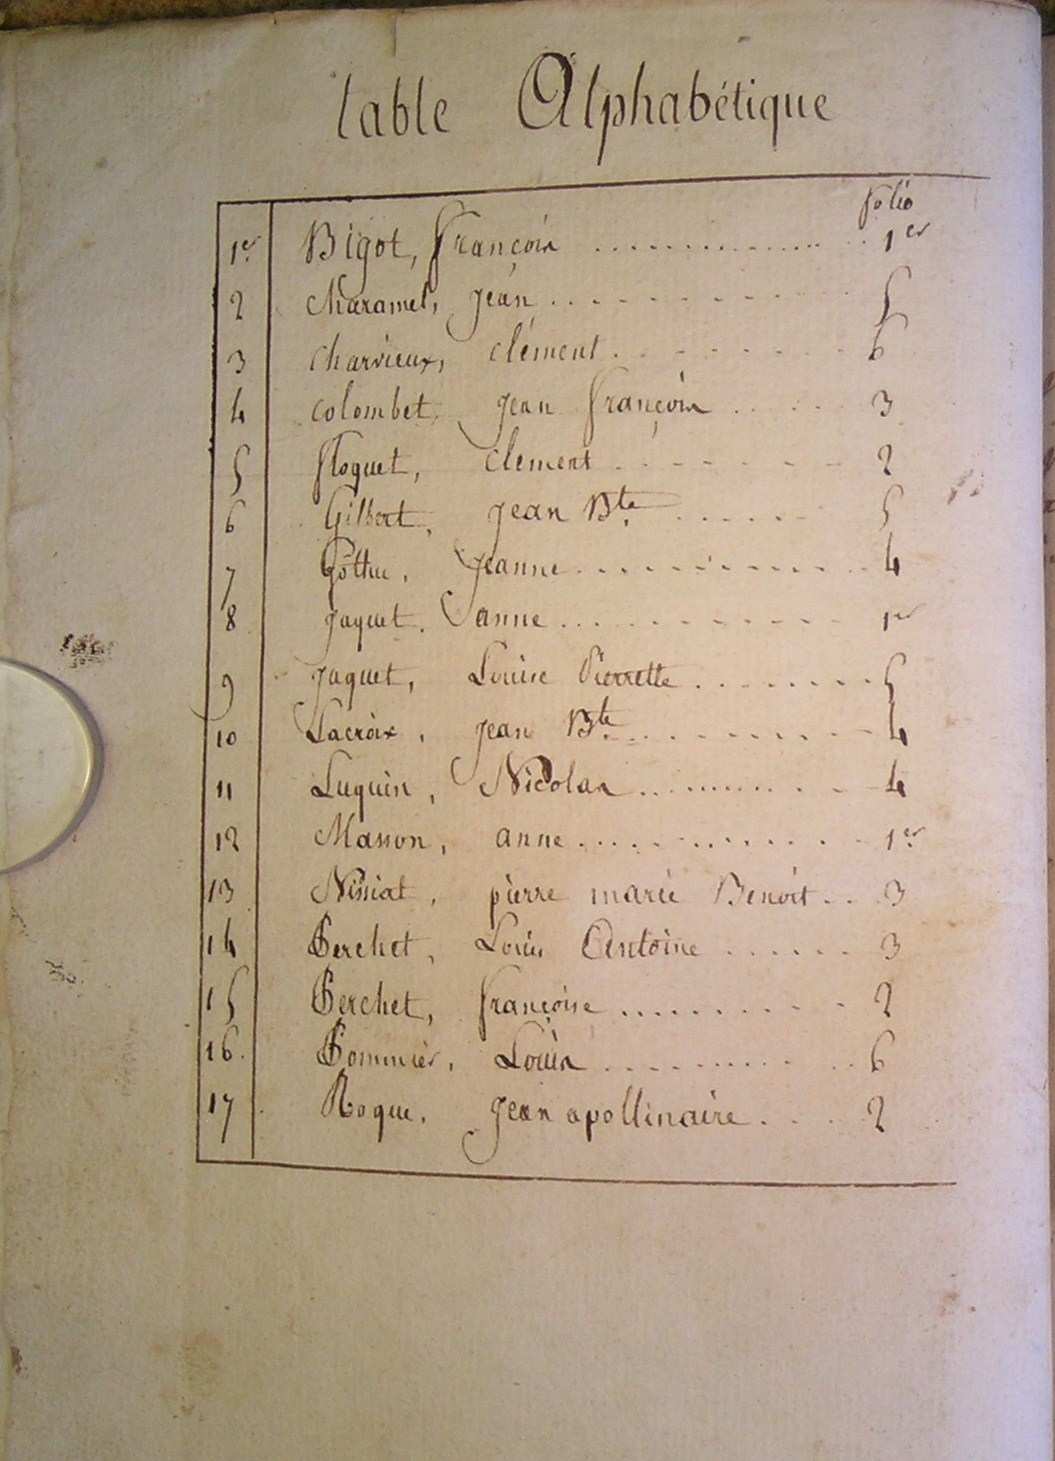 table Alphabétique
folio
1er Bigot, françois 1er
2 Charamel, Jean 5
3 Charvieux, Clément 6
4 Colombet, Jean françois 3
5 floquet, Clement 2
6 Gilbert, Jean Bte 5
7 Gothu, Jeanne 4
8 Jaquet, anne 1er
9 Jaquet, Louise Pierrette 5
10 Lacroix, Jean Bte 4
11 Luquin, Nicolas 4
12 Masson, anne 1er
13 Nissiat, pierre marie Benoit 3
14 Perchet, Louis Antoine 3
15 Perchet, françoise 2
16 Pommier, Louis 6
17 Roque, Jean apollinaire 2